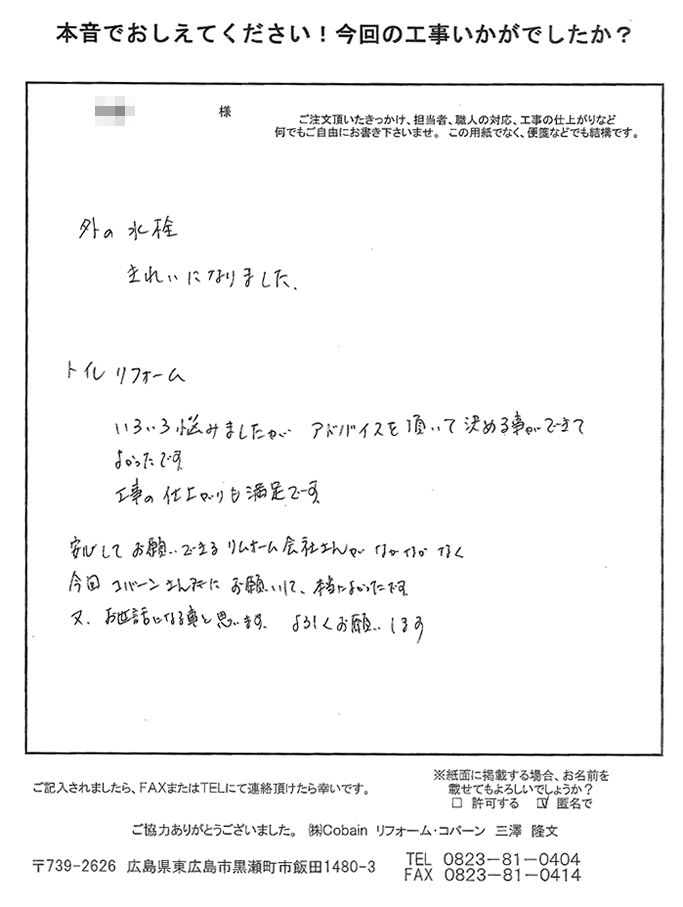 本音でおしえてください！今回の工事いかがでしたか？
様
ご注文頂いたきっかけ、担当者、職人の対応、工事の仕上がりなど
何でもご自由にお書き下さいませ。この用紙でなく、便箋などでも結構です。
外の水栓
きれいになりました。
トイレリフォーム
いろいろ悩みましたが アドバイスを頂いて決める事ができて
よかったです
工事の仕上がりも満足です
安心してお願いできるリムォーム会社さんがなかなかなく
今回コバーンさんにお願いして、本当によかったです。
又、お世話になる事と思います。よろしくお願いします
ご記入されましたら、FAXまたはTELにて連絡頂けたら幸いです。
※紙面に掲載する場合、お名前を
載せてもよろしいでしょうか？
□ 許可する ☑ 匿名で
ご協力ありがとうございました。㈱Cobain リフォーム・コバーン 三澤 隆文
〒739-2626 広島県東広島市黒瀬町市飯田1480-3
TEL 0823-81-0404
FAX 0823-81-0414